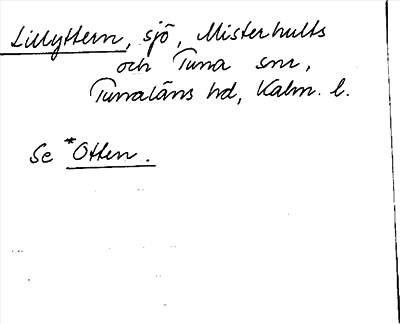 Lillyttern, sjö, Misterhults
och Tuna snr,
Tunaläns hd, Kalm. l.
Se *Otten.